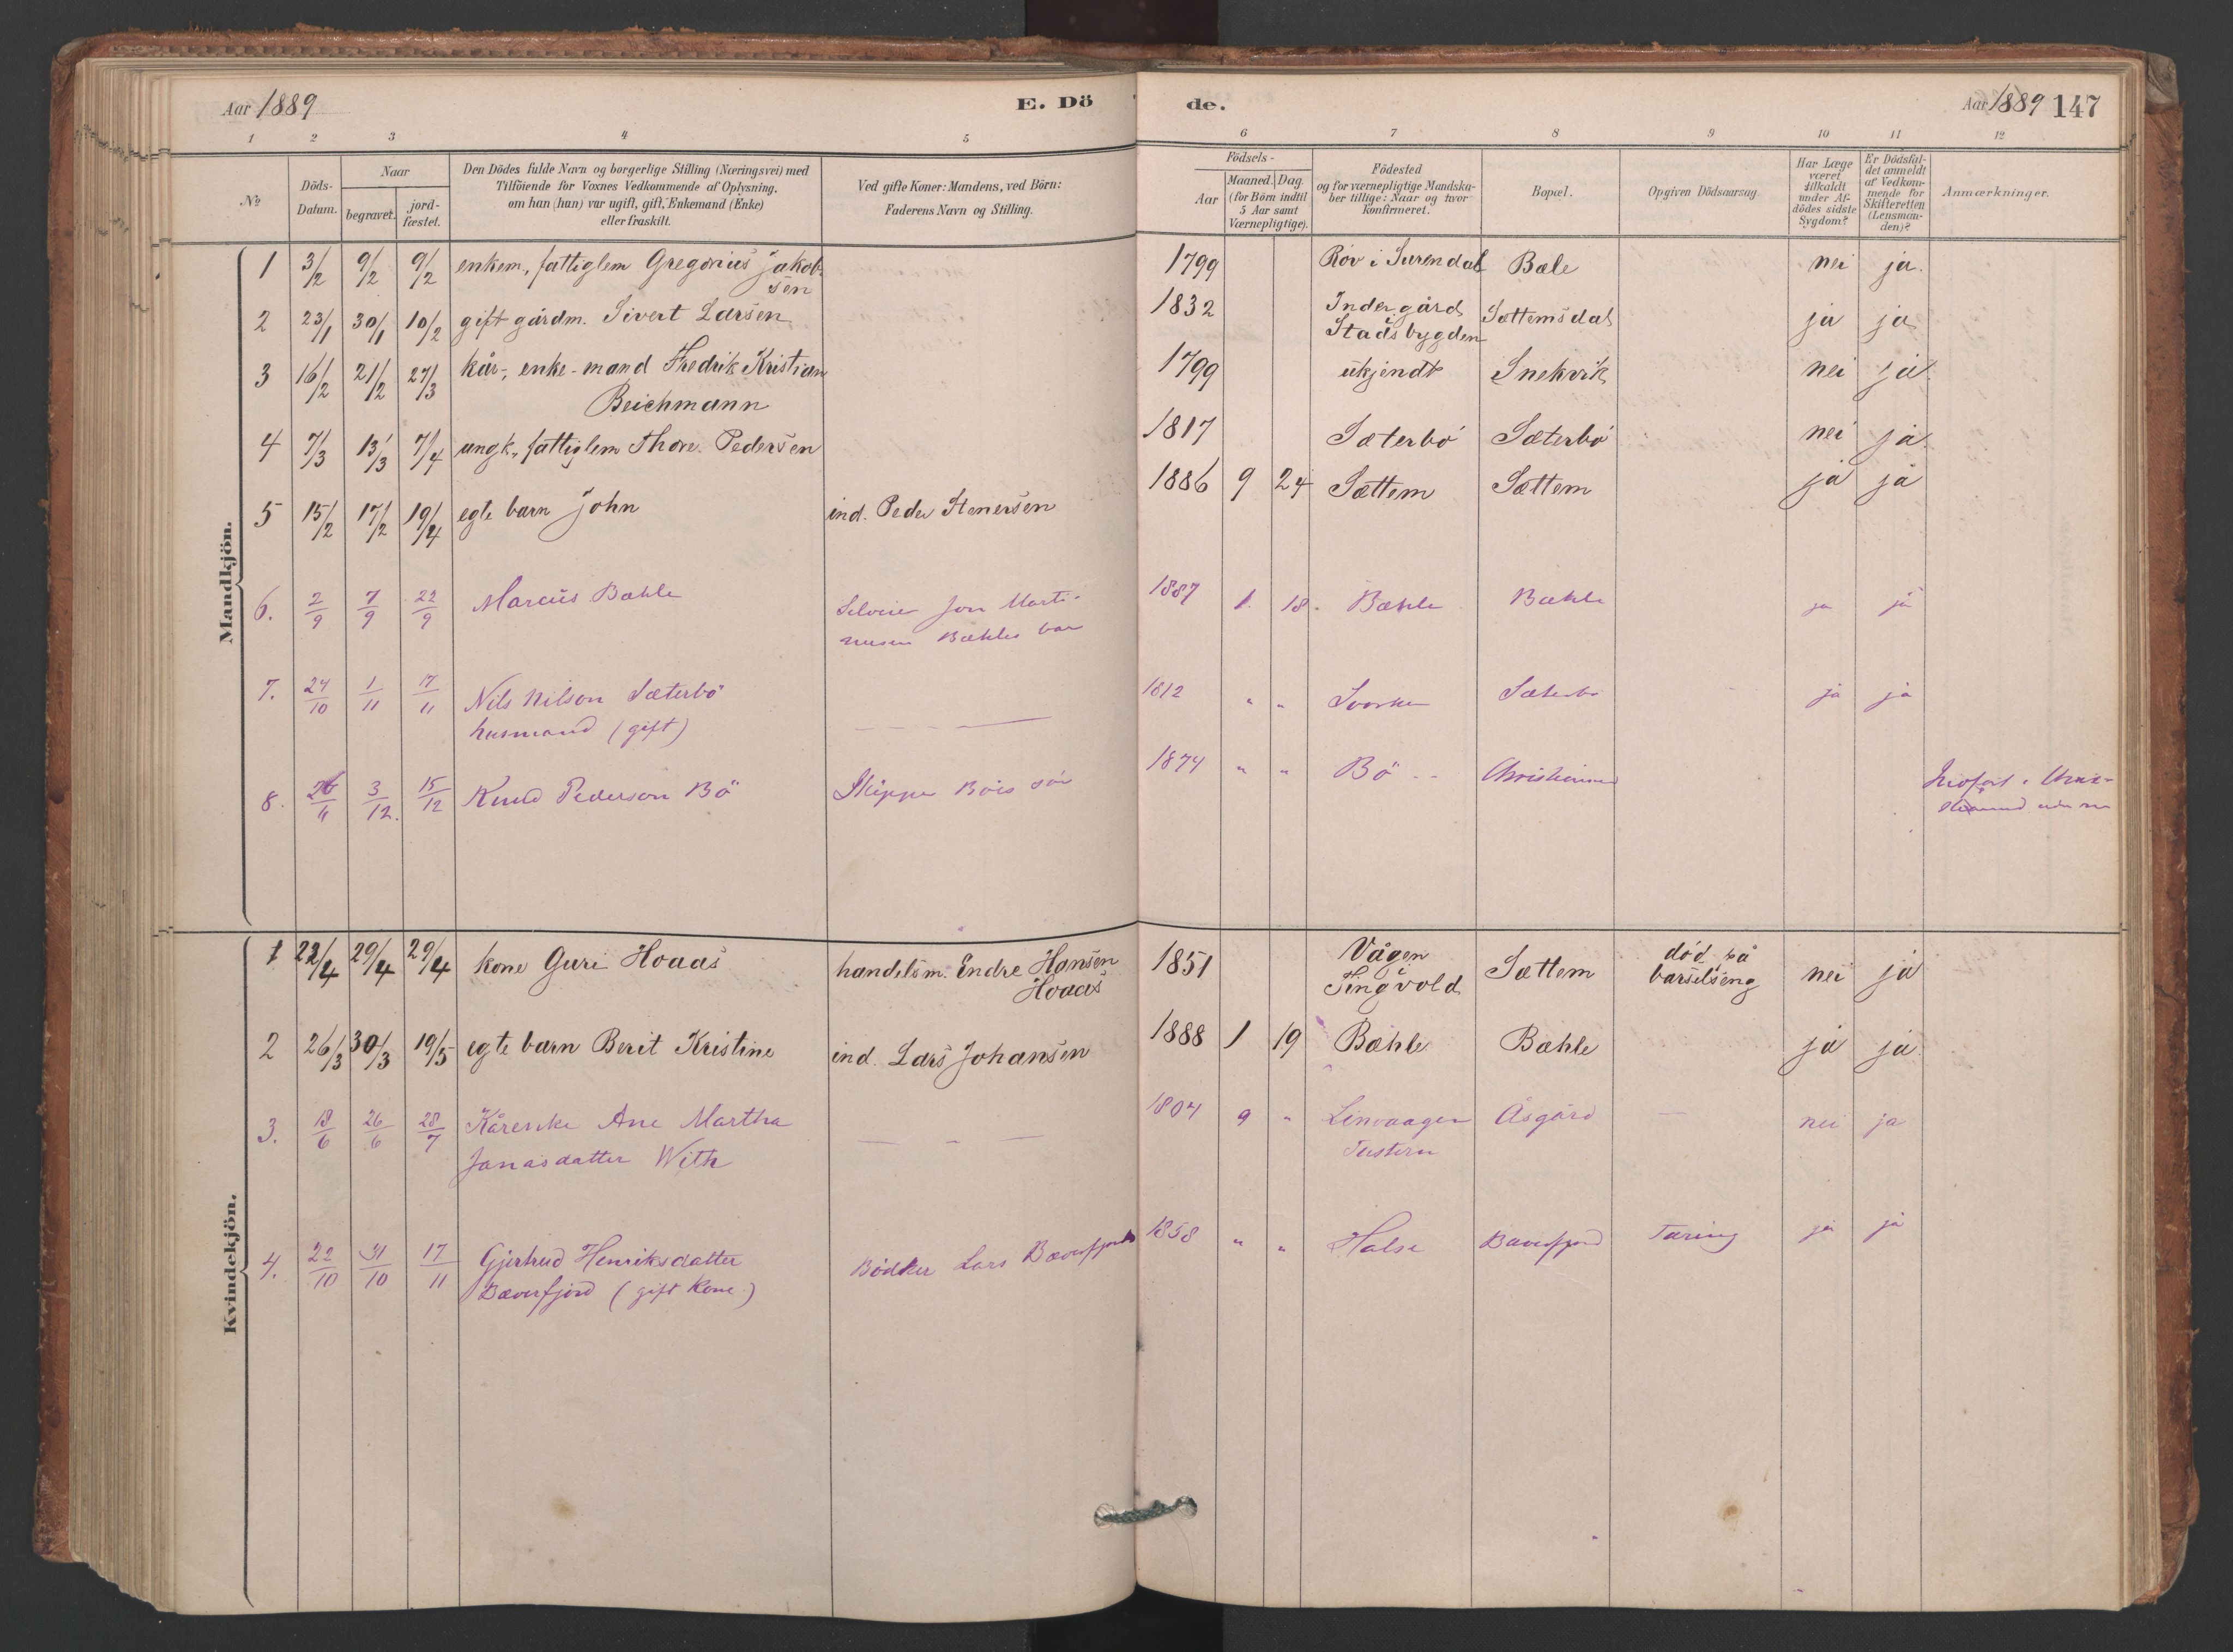 Aar 1889
E. Dö
de.
Aar 1889 147
1 2 3 4 5 6 7 8 9 10 11 12
No
Döds-
Datum.
Naar
begravet.
jord-
fæstet.
Den Dödes fulde Navn og borgerlige Stilling (Næringsvei) med
Tilföiende for Voxnes Vedkommende af Oplysning,
om han (hun) var ugift, gift, Enkemand (Enke)
eller fraskilt.
Ved gifte Koner: Mandens, ved Börn:
Faderens Navn og Stilling.
Födsels-
Aar
Maaned. Dag
(for Börn indtil
5 Aar samt
Værnepligtige).
Födested
og for værnepligtige Mandska-
ber tillige: Naar og hvor
konfirmeret.
Bopæl.
Opgiven Dödsaarsag.
Har Læge
været
tilkaldt
under Af-
dödes sidste
Sygdom?
Er Dödsfal-
det anmeldt
af Vedkom-
mende for
Skifteretten
(Lensman-
den)?
Anmærkninger.
Mandkjön.
1 3/2 9/2 9/2 enkem, fattiglem Gregorius Jakob-
sen
1799 Röv i Surendal Bæle nei ja.
2 23/1 30/1 10/2 gift gårdm. Sivert Larsen
1832 Indergård
i
Stadsbygden
Sættemsdal ja ja
3 16/2 21/2 27/3 kår-, enke-mand Fredrik Kristian
Beichmann
1799 ukjendt Snekvik nei ja.
4 7/3 13/3 7/4 ungk., fattiglem Thore Pedersen
1817 Sæterbö Sæterbö nei ja.
5 15/2 17/2 19/4 egte barn John ind. Peder Stenersen
1886 9 24 Sættem Sættem ja ja
6. 2/9 7/9 22/9 Marcus Bæhle
Selveier Jon Marti-
nusen Bæhles barn
1887 1. 18. Bæhle Bæhle ja ja
7. 24/10 1/11 17/11 Nils Nilson Sæterbö
husmand (gift)
1812 " " Svorken Sæterbö ja ja
8. 26/11 3/12. 15/12 Knud Pederson Bö Skipper Böis sön
1874 " " Bö Christiansund
Kvindekjön.
1 22/4 29/4 29/4 kone Guri Hoaas handelsm. Endre Hansen
Hoaas
1851 Vågen
i
Tingvold
Sættem död på
barselseng
nei ja
2 26/3 30/3 19/5 egte barn Berit Kristine ind. Lars Johansen
1888 1 19 Bæhle Bæhle ja ja.
3. 18/6 26/6 28/7 Kårenke Ane Martha
Jonasdatter With
1804 9 " Linvaagen
Tustern
Åsgård nei ja
4. 22/10 31/10 17/11 Gjertrud Henriksdatter
Bæverfjord (gift kone.)
Bödker Lars Bæverfjord
1858 " " Halse Bæverfjord Tæring ja ja